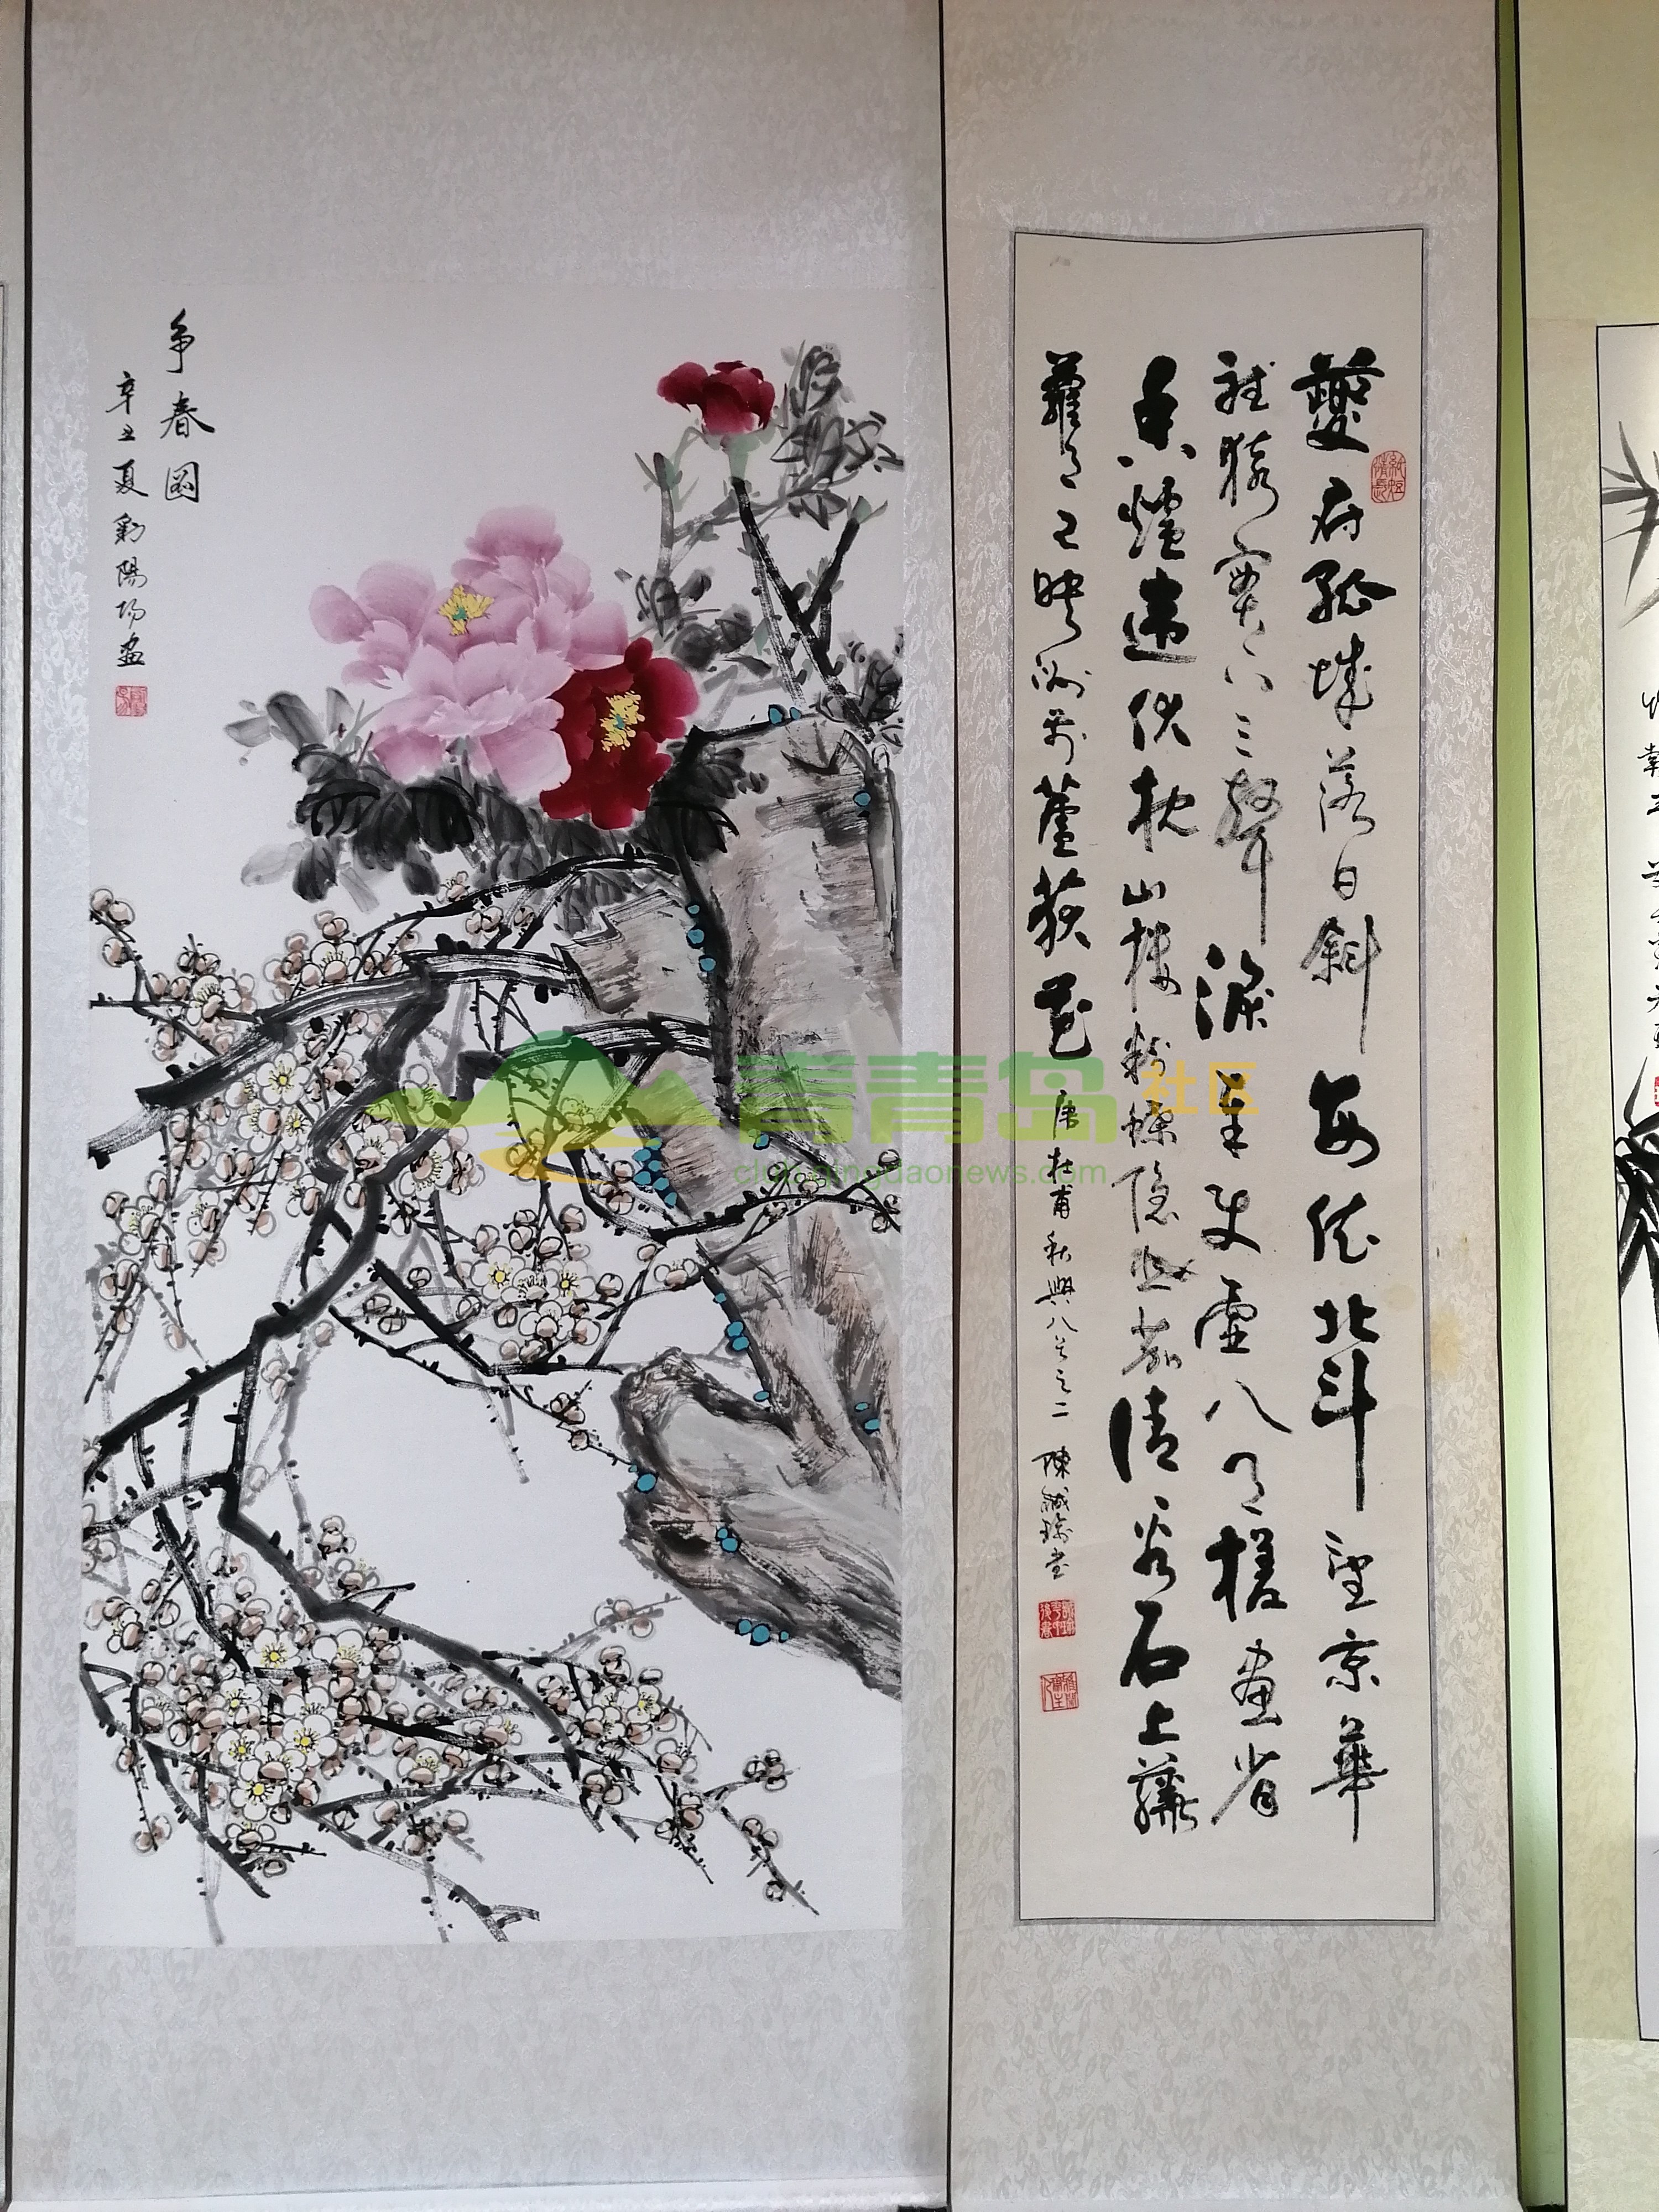 争春図
辛丑夏
夔府孤城落日斜每依北斗望京華
聽猿實下三聲淚奉使虛八月槎畫省
香爐違伏枕山樓粉堞隱悲笳請看石上藤
蘿月已映洲前蘆荻花 唐杜甫秋興八首之二 陳
青青岛社区
club.qingdaonews.com